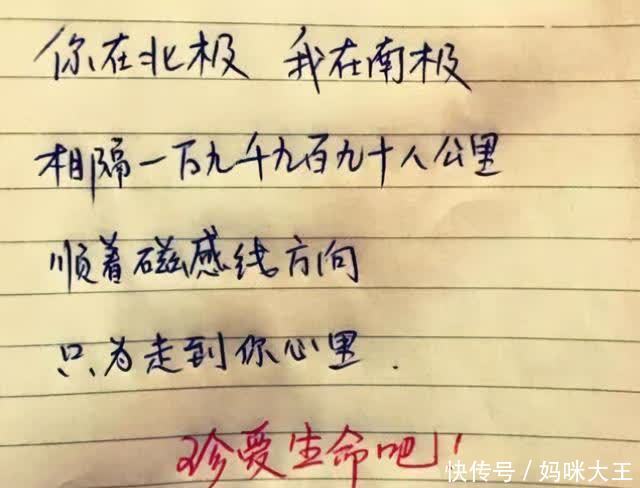 你在北极 我在南极
相隔一万九千九百九十八公里
顺着磁感线方向
只为走到你心里.
珍爱生命吧!!
快传号/妈咪大王